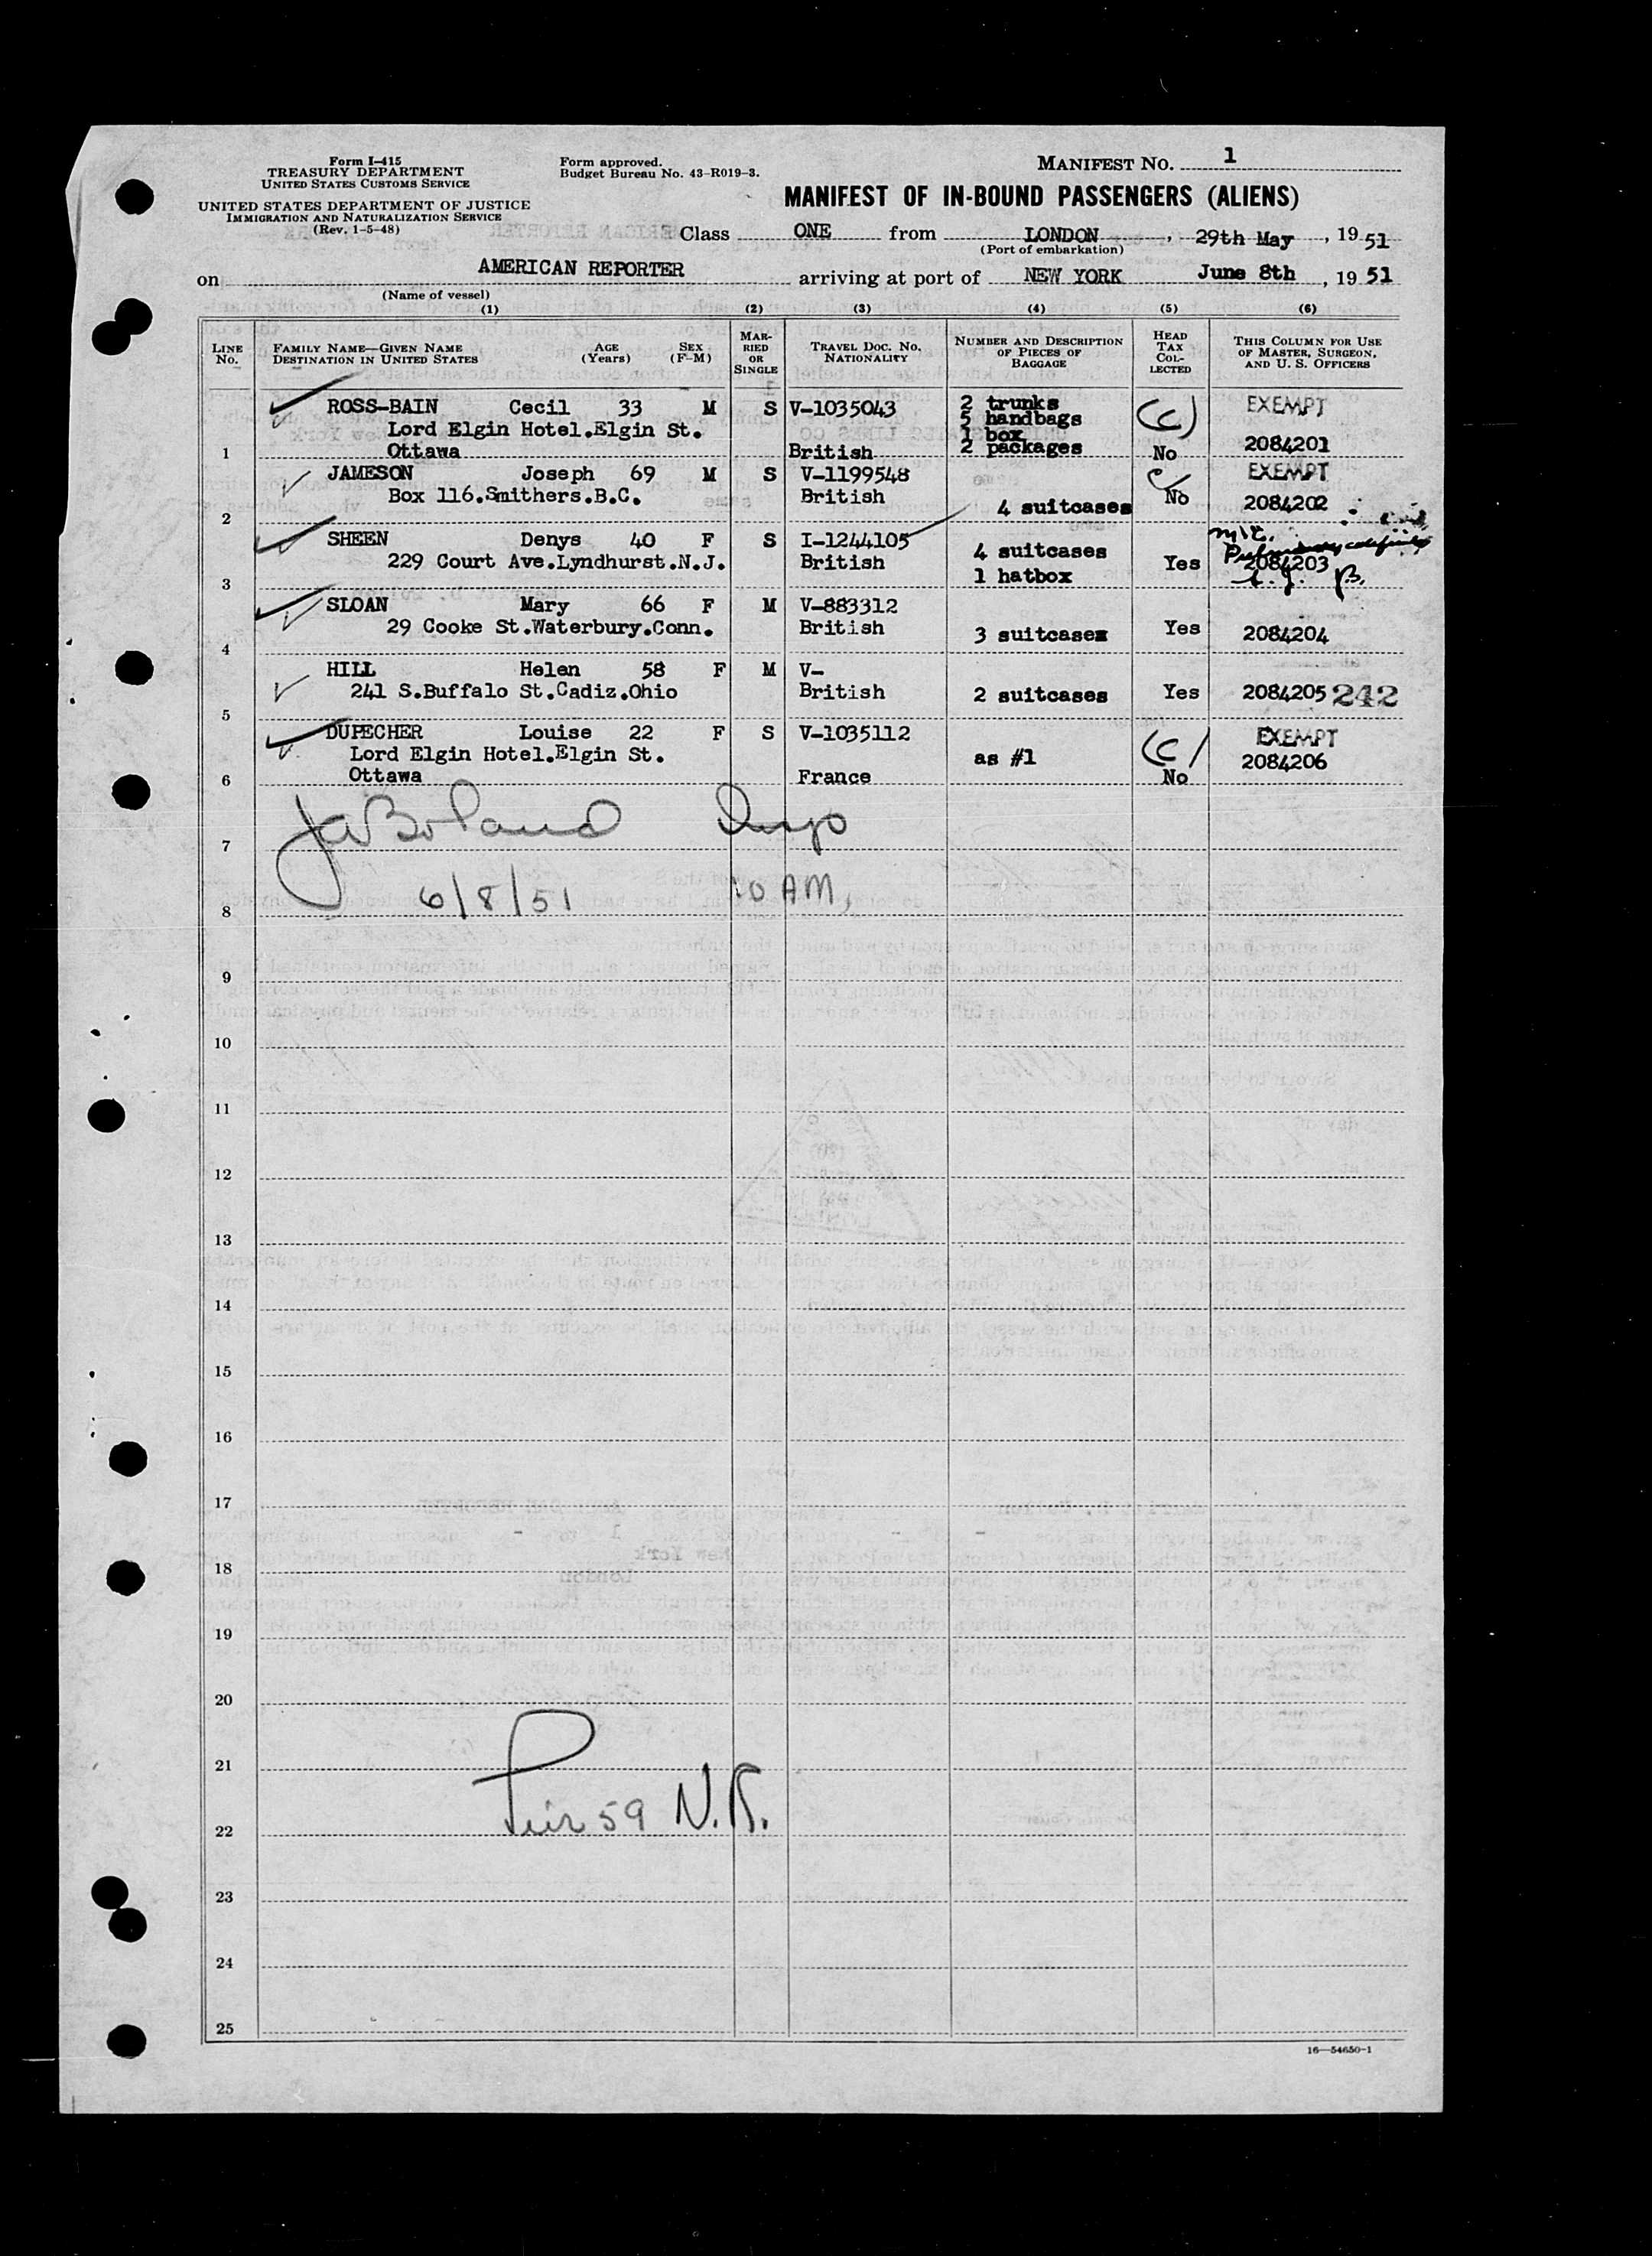 Form I-415
TREASURY DEPARTMENT
UNITED STATES CUSTOMS SERVICE
UNITED STATES DEPARTMENT OF JUSTICE
IMMIGRATION AND NATURALIZATION SERVICE
(Rev. 1-5-48)
Form approved.
Budget Bureau No. 43-R019-3.
MANIFEST NO. 1
MANIFEST OF IN-BOUND PASSENGERS (ALIENS)
Class ONE from LONDON, 29th May, 19 51
(Port of embarkation)
on AMERICAN REPORTER arriving at port of NEW YORK June 8th, 19 51
(Name of vessel)
(1) (2) (3) (4) (5) (6)
LINE NO. FAMILY NAME—GIVEN NAME DESTINATION IN UNITED STATES AGE (Years) SEX (F-M) MARRIED OR SINGLE TRAVEL DOC. NO. NATIONALITY NUMBER AND DESCRIPTION OF PIECES OF BAGGAGE HEAD TAX COLLECTED THIS COLUMN FOR USE OF MASTER, SURGEON, AND U. S. OFFICERS
ROSS-BAIN Cecil 33 M S V-1035043 2 trunks (C) EXEMPT
5 handbags
Lord Elgin Hotel.Elgin St. 1 box
1 Ottawa British 2 packages No 2084201
JAMESON Joseph 69 M S V-1199548 C EXEMPT
Box 116.Smithers.B.C. British No
2 4 suitcases 2084202
SHEEN Denys 40 F S I-1244105 4 suitcases
229 Court Ave.Lyndhurst.N.J. British Yes 2084203
3 1 hatbox
SLOAN Mary 66 F M V-883312
29 Cooke St.Waterbury.Conn. British 3 suitcases Yes 2084204
4
HILL Helen 58 F M V-
241 S.Buffalo St.Cadiz.Ohio British 2 suitcases Yes 2084205 242
5
DUPECHER Louise 22 F S V-1035112 (C) EXEMPT
Lord Elgin Hotel.Elgin St. as #1 2084206
6 Ottawa France No
JA Boland Insp
7
6/8/51 10 AM,
8
9
10
11
12
13
14
15
16
17
18
19
20
21
Pier 59 N.R.
22
23
24
25
16—54650-1